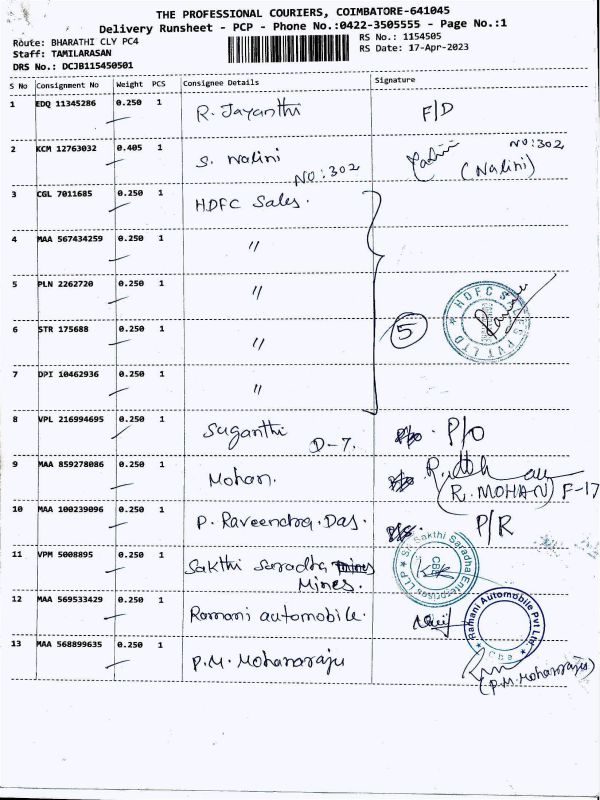 THE PROFESSIONAL COURIERS, COIMBATORE-641045
Delivery Runsheet - PCP - Phone No.:0422-3505555 - Page No.:1
Route: BHARATHI CLY PC4
Staff: TAMILARASAN
DRS No.: DCJB115450501
RS No.: 1154505
RS Date: 17-Apr-2023
S No Consignment No Weight PCS Consignee Details Signature
1 EDQ 11345286 0.250 1 R. Jayanthi F/D
2 KCM 12763032 0.405 1 S. Nalini NO:302 NO:302
(Nalini)
3 CGL 7011685 0.250 1 HDFC Sales.
4 MAA 567434259 0.250 1 〃
5 PLN 2262720 0.250 1 〃
HDFC SALES PVT LTD
6 STR 175688 0.250 1 〃 5
7 DPI 10462936 0.250 1 〃
8 VPL 216994695 0.250 1 Suganthi D-7. P/O
9 MAA 859278086 0.250 1 Mohan.
(R. MOHAN) F-17
10 MAA 100239096 0.250 1 P. Raveendra. Das. P/R
11 VPM 5008895 0.250 1 Sakthi Saradha
Mines.
Sri Sakthi Saradha Enterprises LLP
CBE
12 MAA 569533429 0.250 1 Ramani automobile.
Ramani Automobile Pvt Ltd.
Cbe
13 MAA 568899635 0.250 1 P.M. Mohanaraju
(P.M. Mohanaraju)